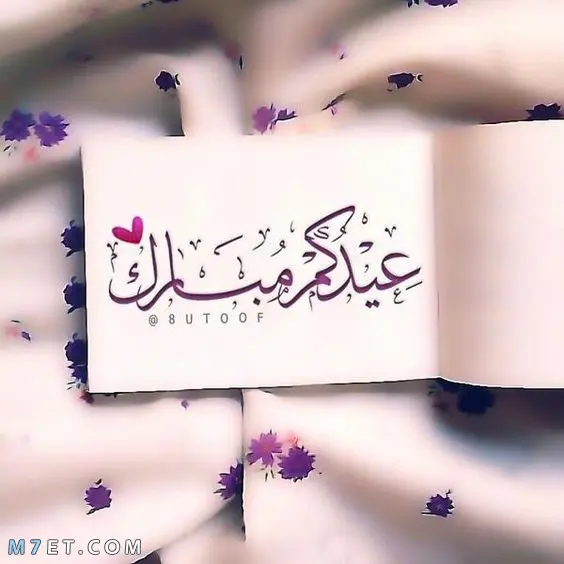 عِيدُكُم مُبَارَك
@8UTOOF
M7ET.COM